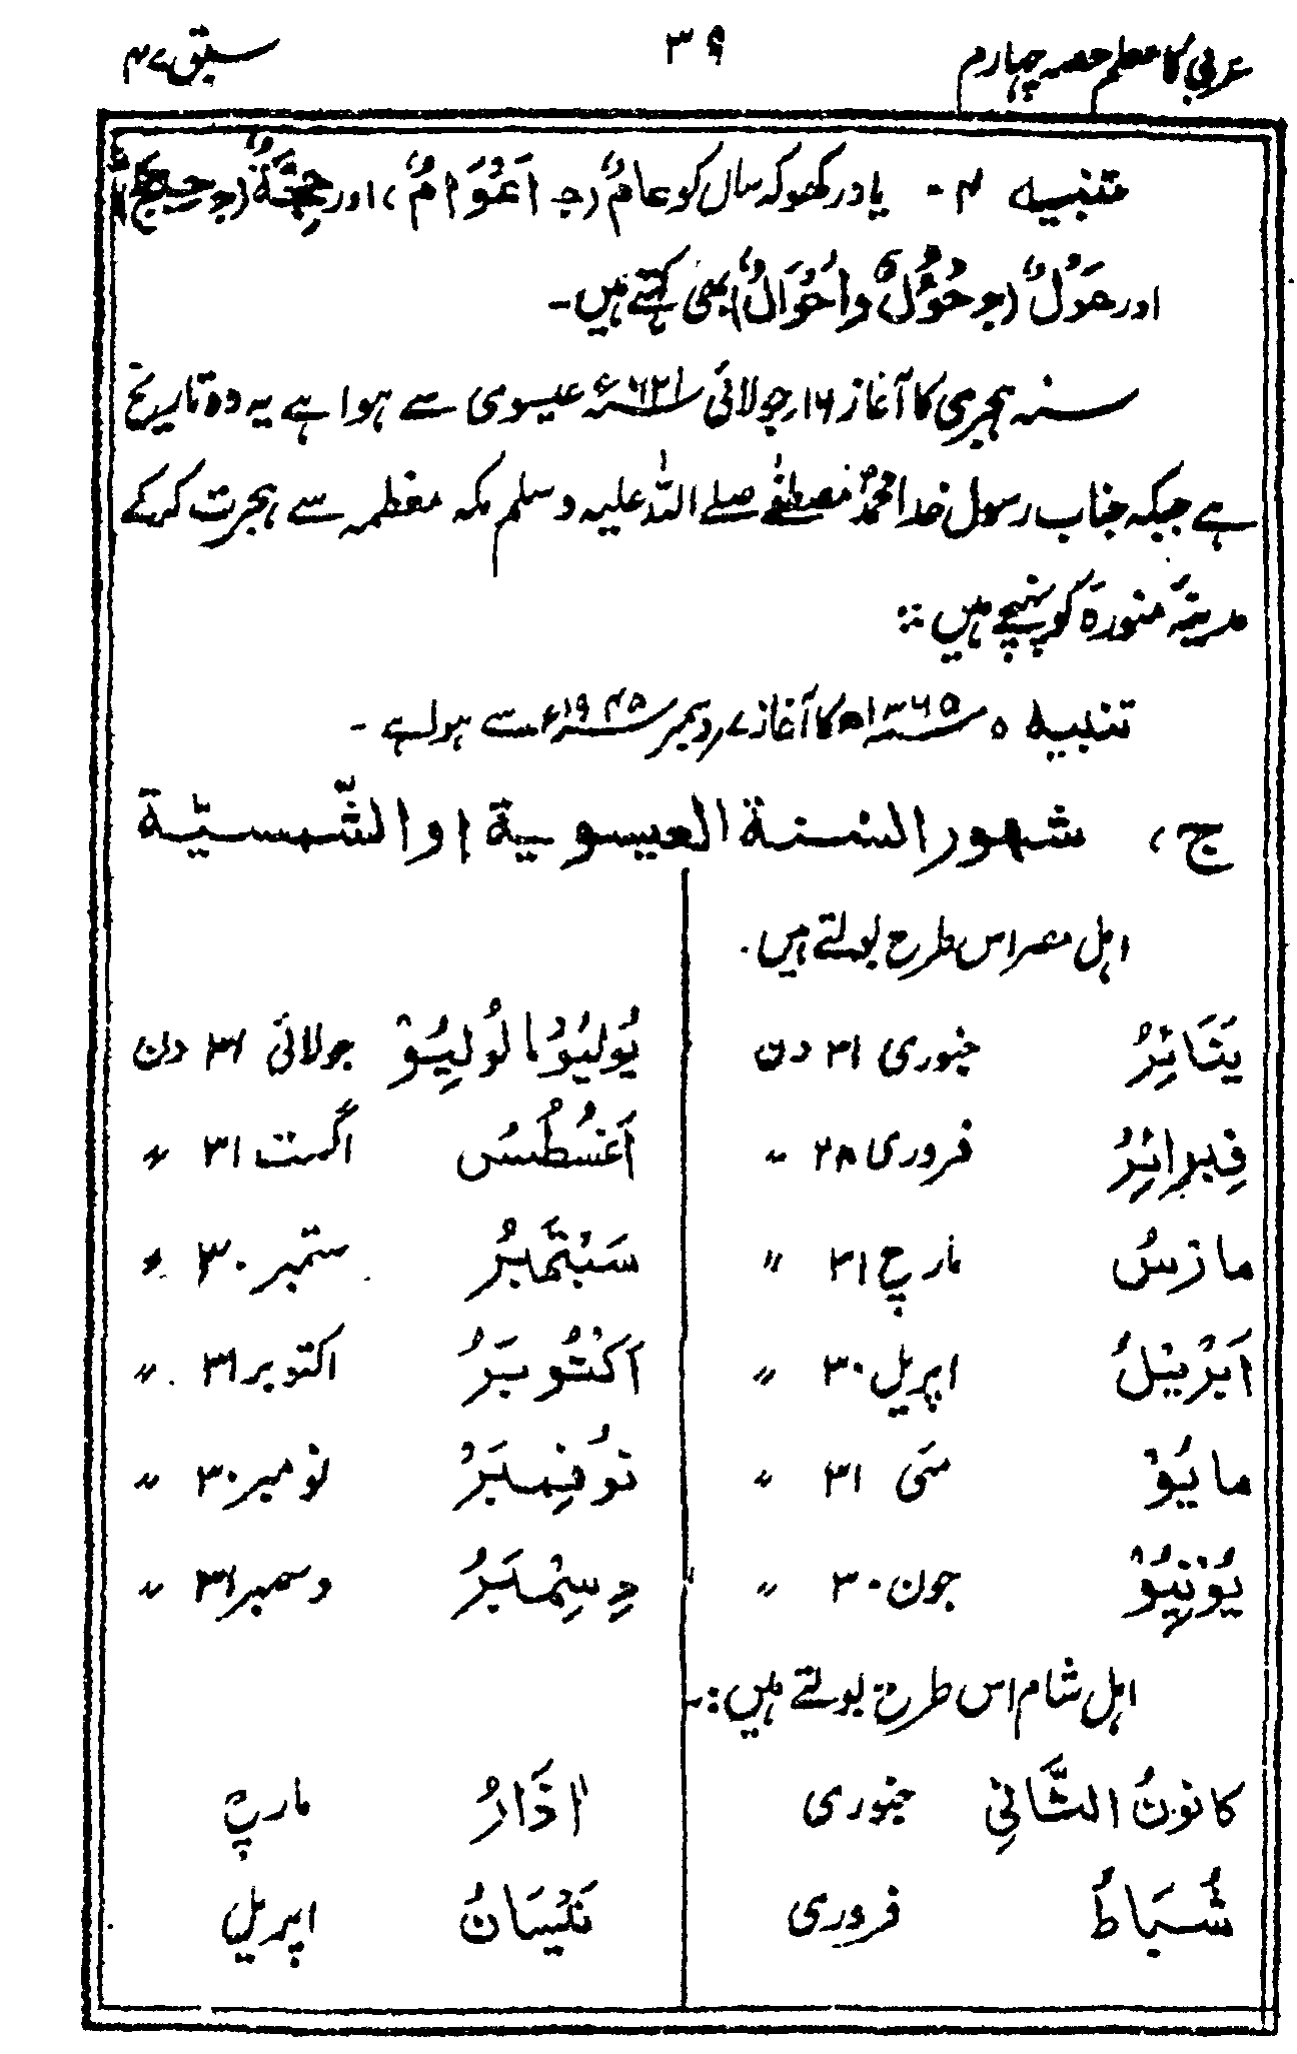 عربی کا معلم حصہ چہارم ۳۹ سبق ۴۷
تنبیہ ۴- یاد رکھو کہ سال کو عَامٌ (جـ اَعْوَامٌ)، اور حِجَّةٌ (جـ حِجَجٌ)
اور حَوْلٌ (جـ حُوُوْلٌ و اَحْوَالٌ) بھی کہتے ہیں۔
سنہ ہجری کا آغاز ۱۶ جولائی ۶۲۲ء عیسوی سے ہوا ہے یہ وہ تاریخ
ہے جبکہ جناب رسول خدا محمدؐ مصطفٰے صلے اللہ علیہ وسلم مکہ معظمہ سے ہجرت کرکے
مدینہ منورہ کو پہنچے ہیں :
تنبیہ ۵ ۱۳۶۵ھ کا آغاز ۷ دسمبر ۱۹۴۵ء سے ہوا ہے -
ج، شهور السنة العيسوية او الشّمسيّة
اہل مصر اس طرح بولتے ہیں.
يَنَائِرُ جنوری ۳۱ دن يُولْيُوْ یا لُولِيُوْ جولائی ۳۱ دن
فِبْرائِرُ فروری ۲۸ 〃 اَغُسْطُسُ اگست ۳۱ 〃
مارْسُ مارچ ۳۱ 〃 سَبْتَمْبَرُ ستمبر ۳۰ 〃
اَبْرِيْلُ اپریل ۳۰ 〃 اَكْتُوبَرُ اکتوبر ۳۱ 〃
مايُوْ مئی ۳۱ 〃 نُوفِمْبَرُ نومبر ۳۰ 〃
يُوْنِيُوْ جون ۳۰ 〃 دِسِمْبَرُ دسمبر ۳۱ 〃
اہل شام اس طرح بولتے ہیں:-
كانونُ الثَّانِي جنوری اٰذَارُ مارچ
شُبَاطُ فروری نَيْسَانُ اپریل